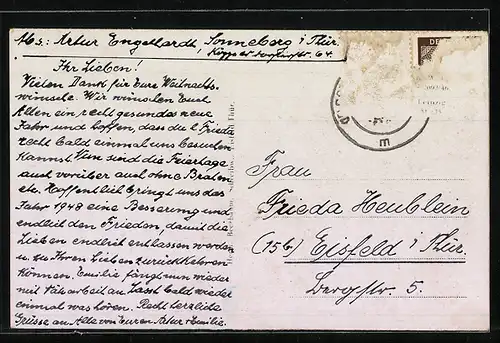 Abs: Artur Engelhardt, Sonneberg i. Thür.
64.
Ihr Lieben!
Vielen Dank für Eure Weihnachts-
wünsche. Wir wünschen Euch
Allen ein recht gesundes neue
Jahr und hoffen, dass du l. Frieda
recht bald einmal uns besuchen
kannst. Nun sind die Feiertage
auch vorüber auch ohne Braten
etc. Hoffentlich bringt uns das
Jahr 1948 eine Besserung und
endlich den Frieden, damit die
Lieben endlich entlassen werden
u. zu Ihren Lieben zurückkehren
können. Emilie fängt nun wieder
mit an. Lasst bald wieder
einmal was hören. Recht herzliche
Grüsse an Alle von Euren Artur & Emilie.
DE
E
Frau
Frieda Heublein
(15b) Eisfeld i. Thür.
Bergstr. 5.